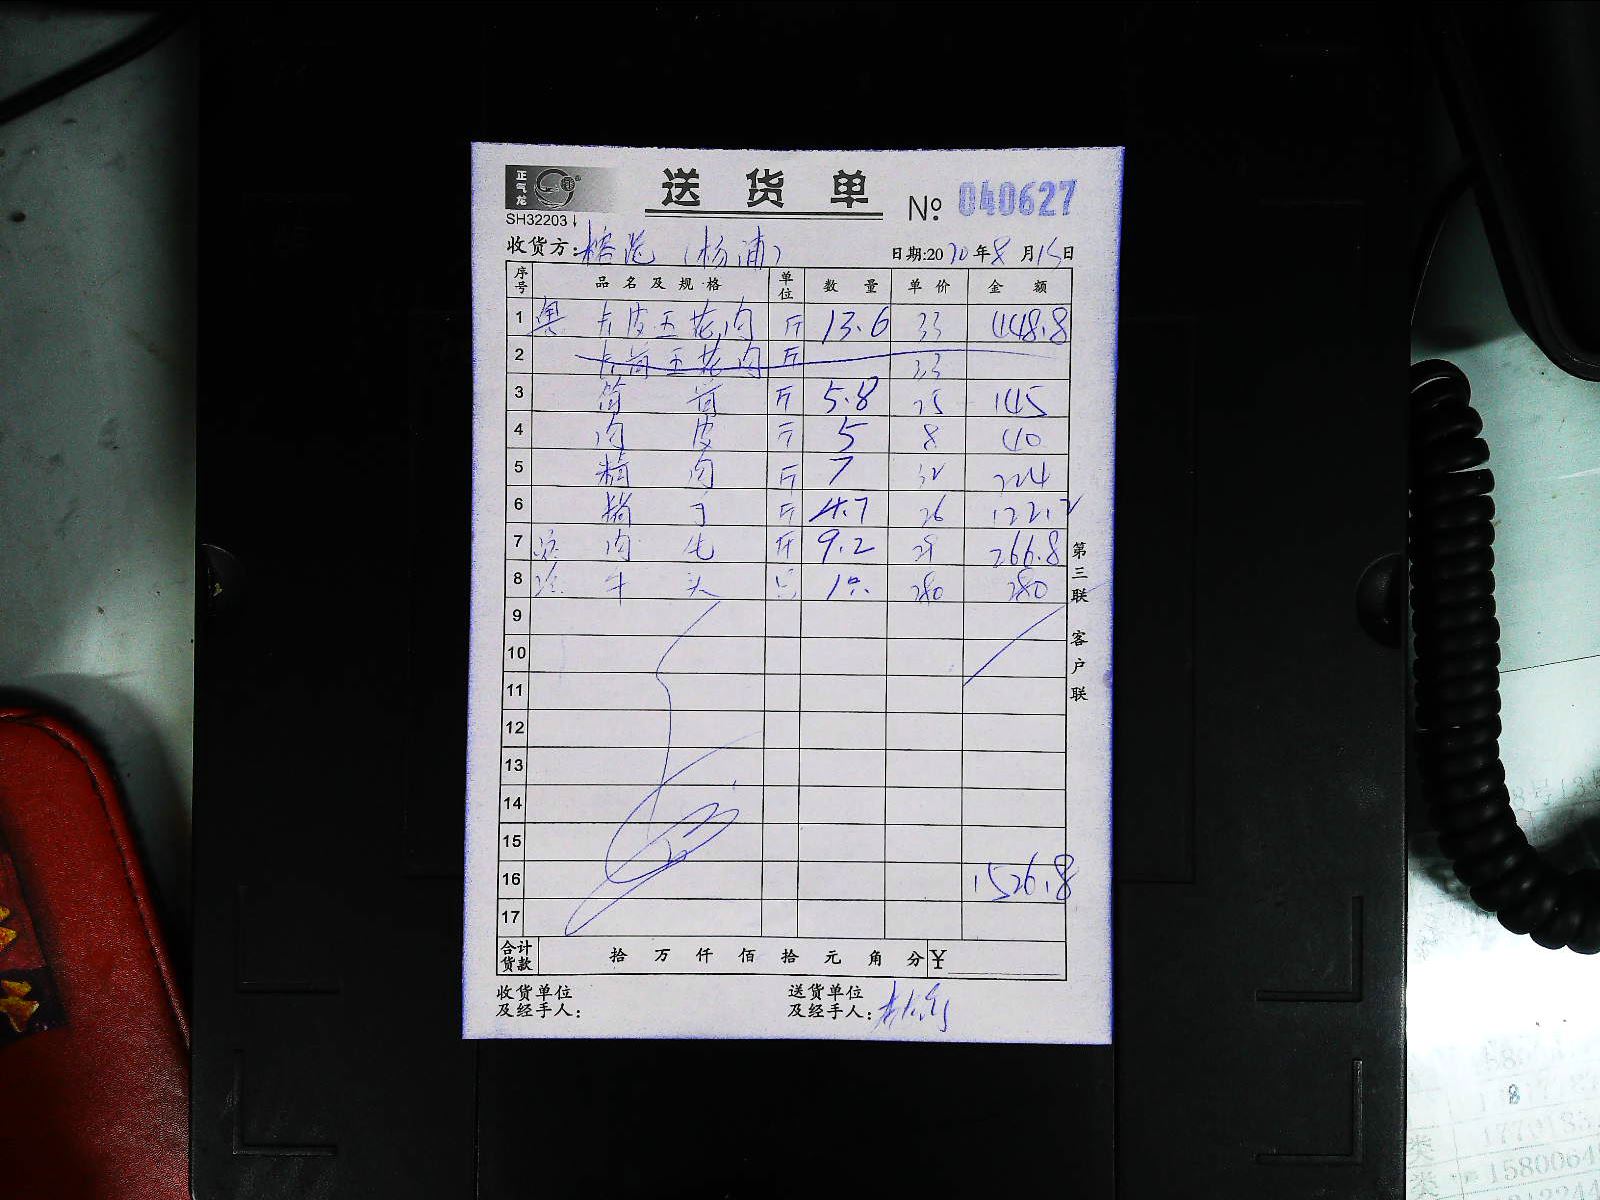 正气龙
送 货 单
№ 040627
SH32203↓
收货方: (杨浦) 日期:2020年8月15日
序号 品名及规格 单位 数量 单价 金额
1 皮五花肉 斤 13.6 33 448.8
2 五花肉 斤 33
3 筒骨 斤 5.8 25 145
4 肉皮 斤 5 8 40
5 精肉 斤 7 32 224
6 斤 4.7 26 122.2
7 肉 斤 9.2 29 266.8
8 牛头 只 1只 280 280
9
10
11
12
13
14
15
16 1526.8
17
合计货款 拾 万 仟 佰 拾 元 角 分 ¥
收货单位及经手人:
送货单位及经手人:
第三联 客户联
8号13
8
类
类 15800640